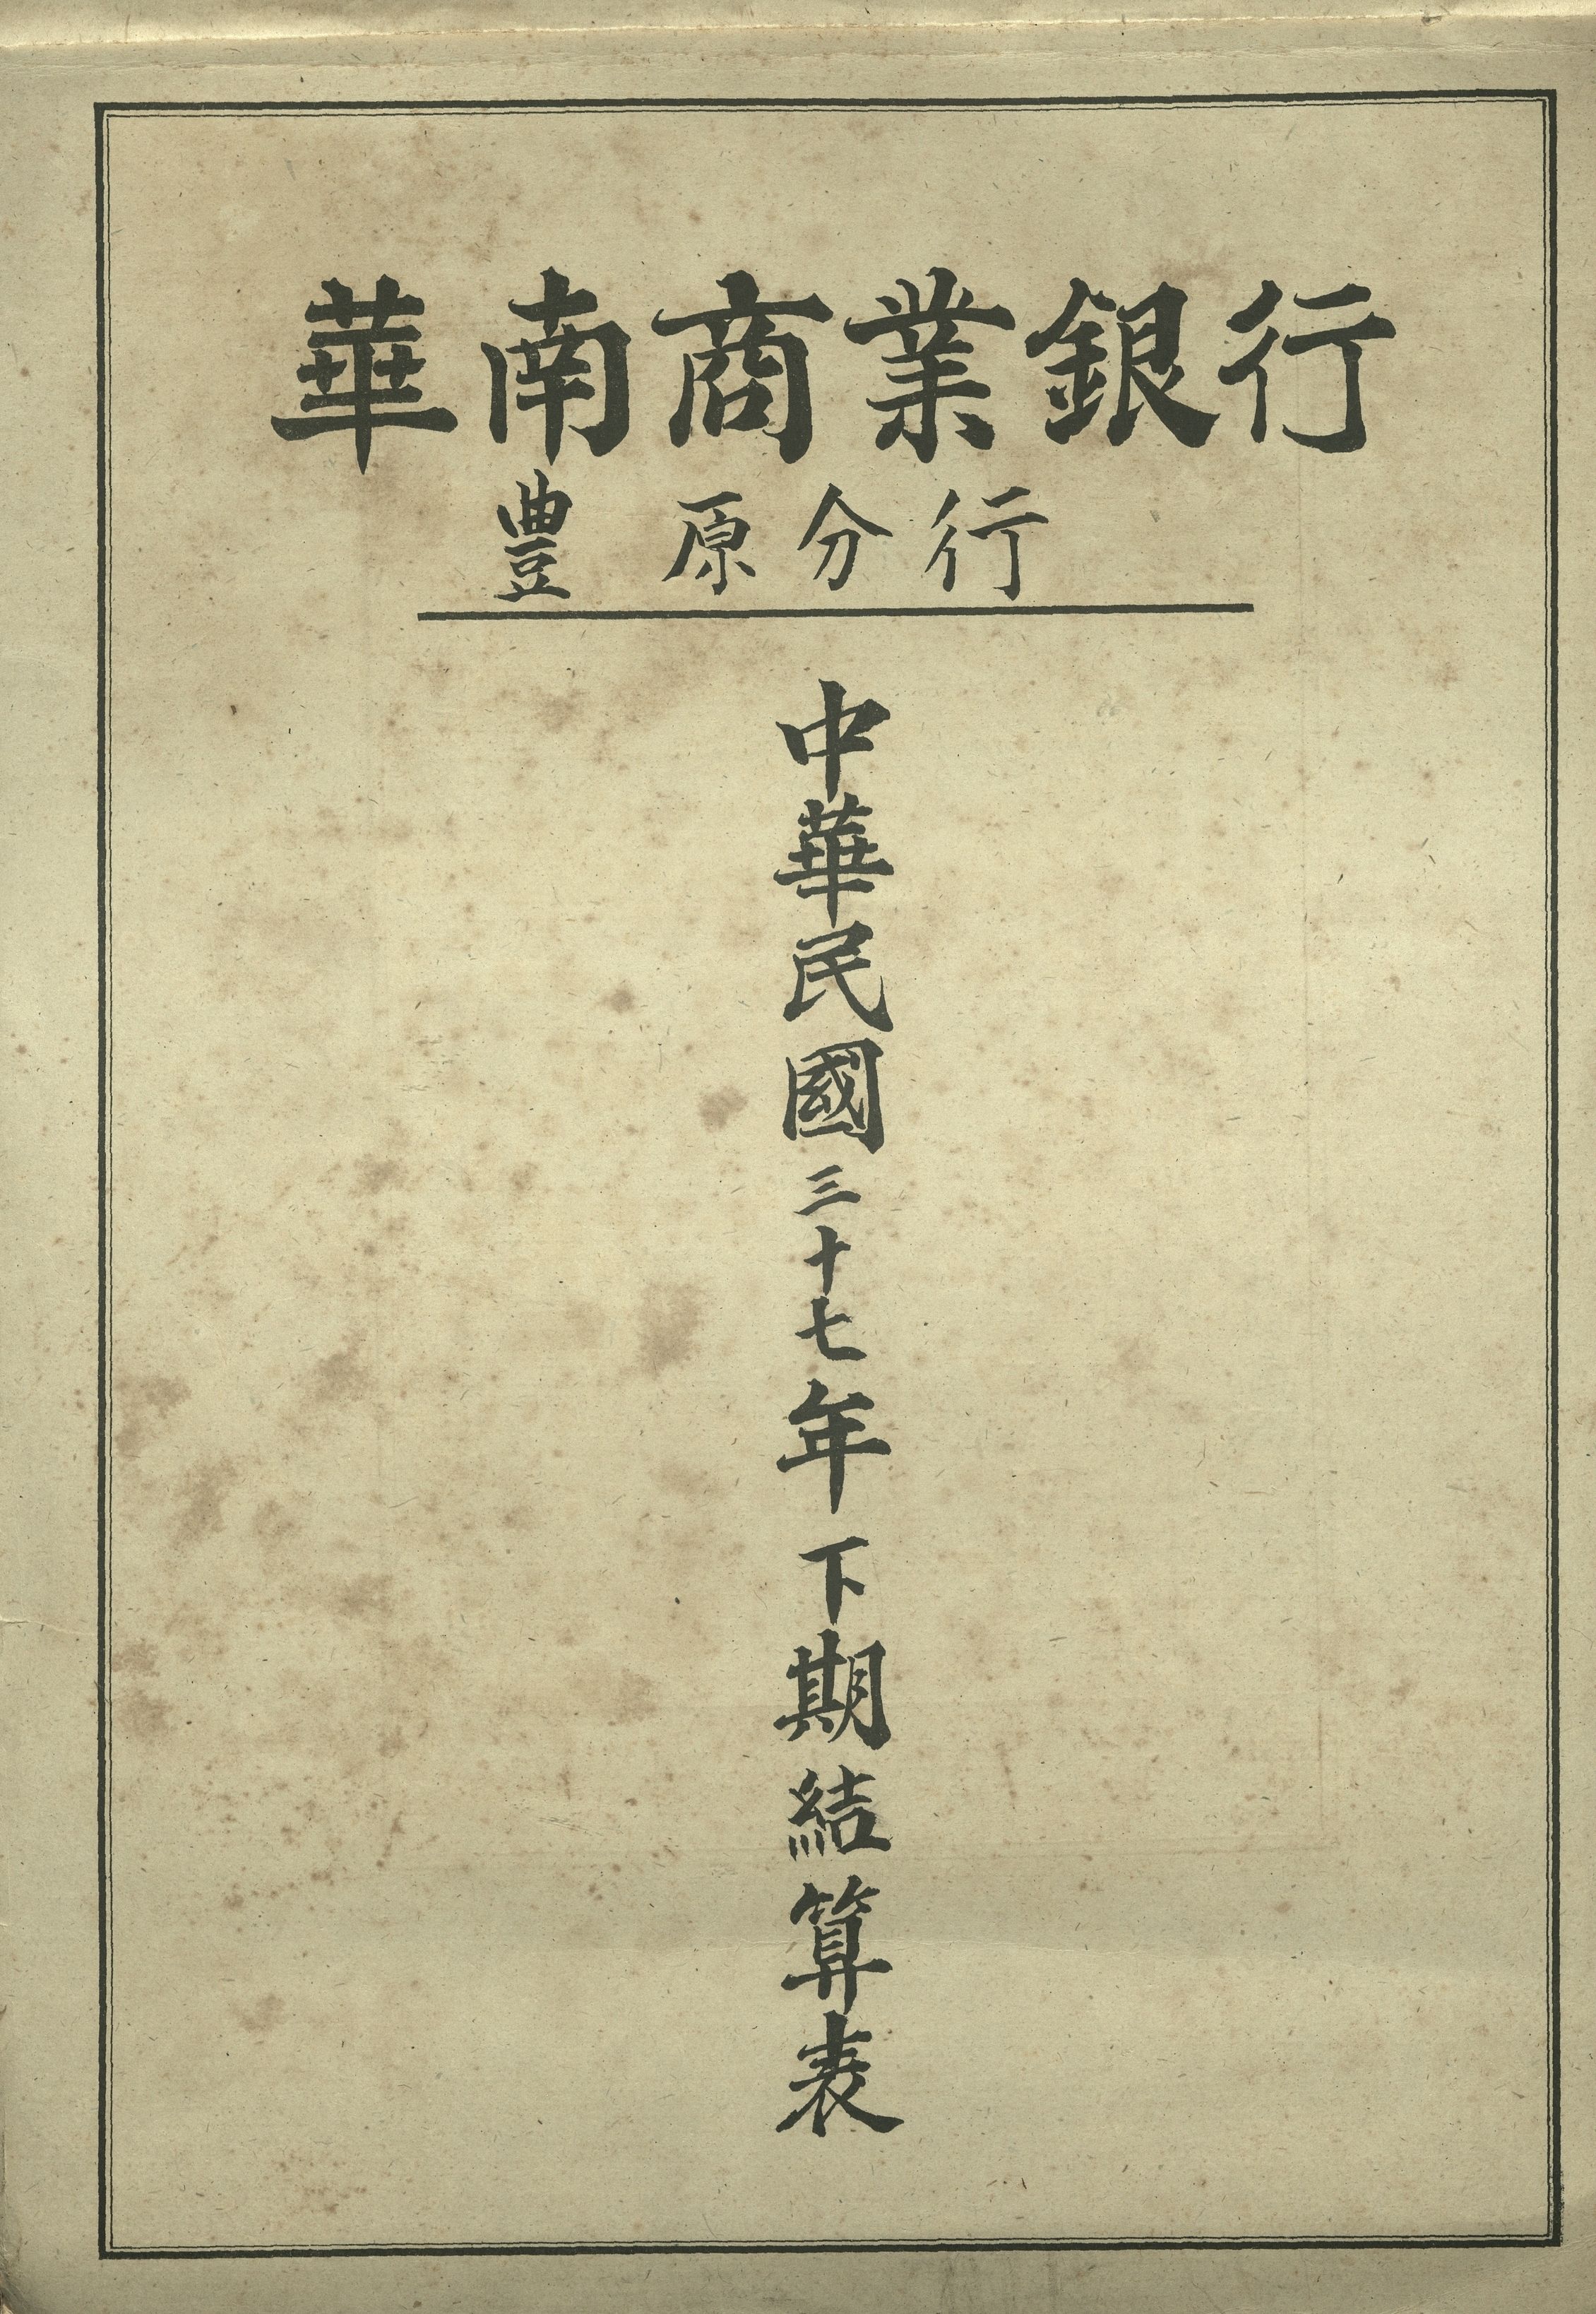 華南商業銀行
豊原分行
中華民國三十七年下期結算表